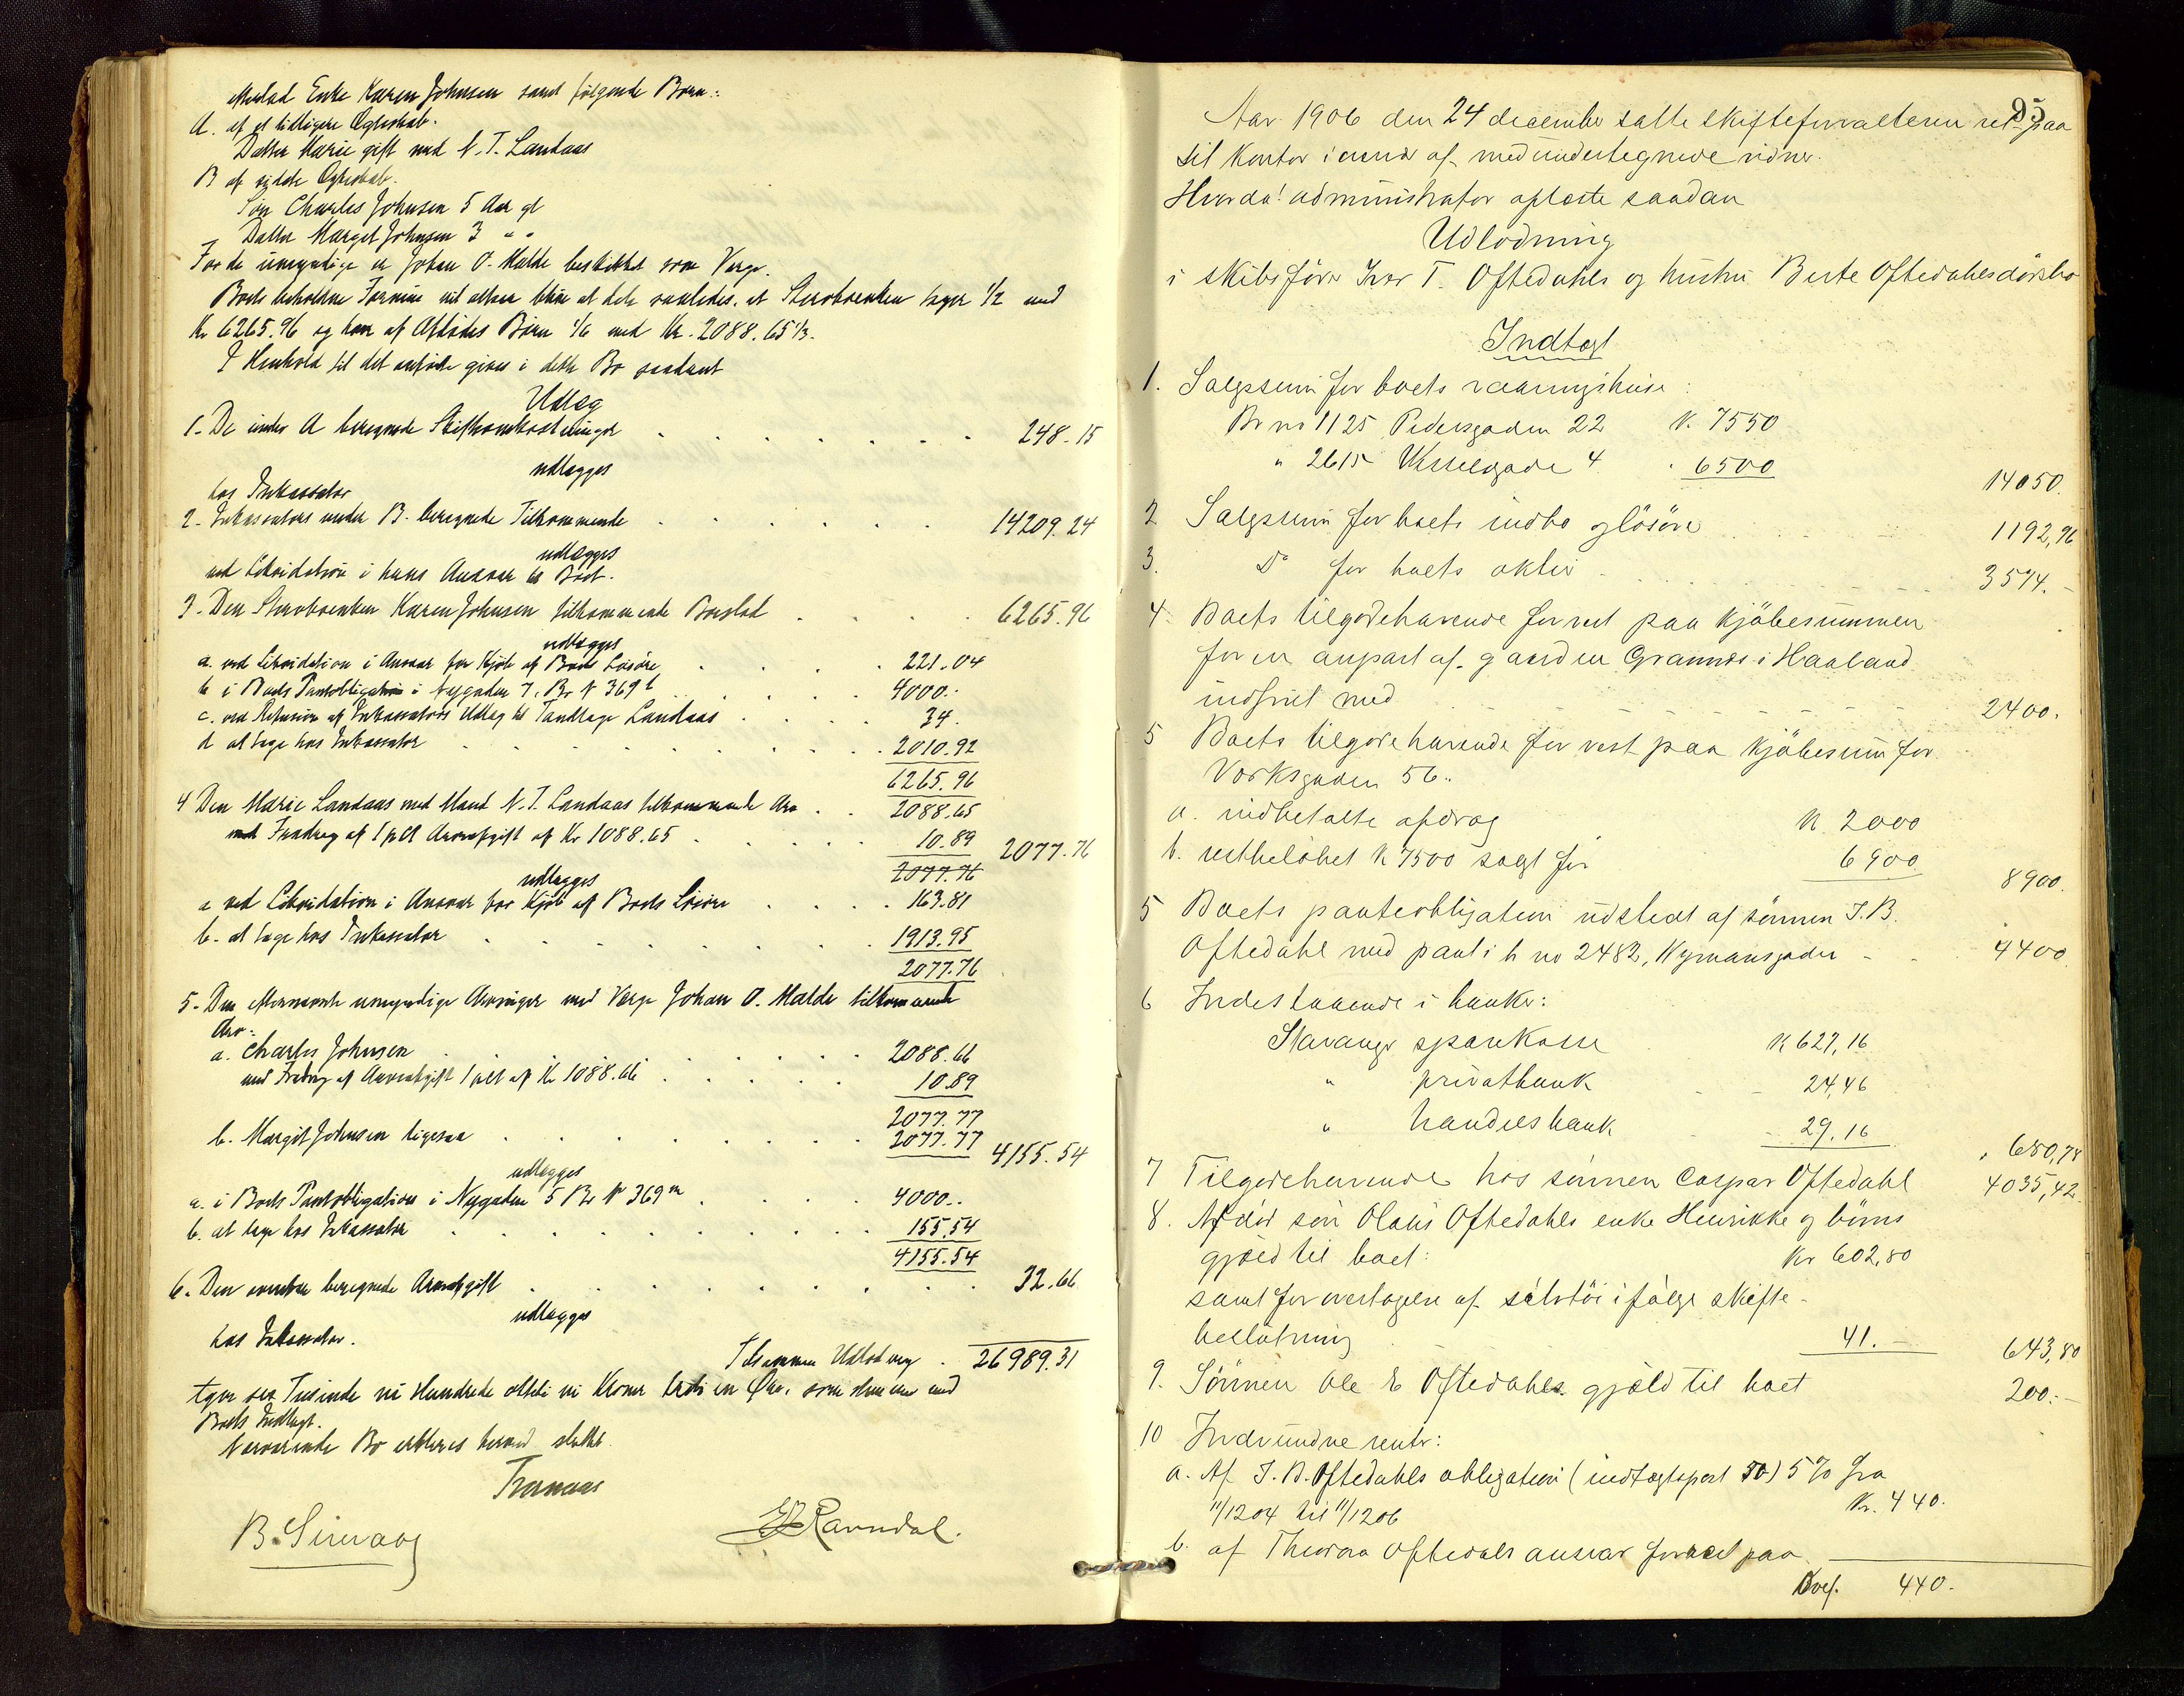 Enke Karen Johnsen samt følgende Børn:
A. af et tidligere Ægteskab.
Datter Marie gift med N. T. Landaas
B af sidste Ægteskab.
Søn Charles Johnsen 5 Aar gl
Datter Margit Johnsen 3 " "
For de umyndige er Johan O. Malde beskikket som Verge.
Boets beholdne Formue vil altsaa blive at dele saaledes, at Stervboenken tager 1/2 med
Kr 6265.96 og hver af Afdødes Børn 1/6 med Kr. 2088.65 1/3.
I Henhold til det anførte gives i dette Bo saadant
Udlæg
1. De under A beregnede Skifteomkostninger . . . . . . . 248.15
udlægges
hos Inkassator
2. Inkassators under B. beregnede Tilkommende . . . . . . 14209.24
udlægges
ved Likvidation i hans Ansvar til Boet.
3. Den Stervboenken Karen Johnsen tilkommende Boeslod . . . . 6265.96
udlægges
a. ved Likvidation i Ansvar for Kjøb af Boets Løsøre . . . 221.04
b i Boets Pantobligation i Nygaden 7, Br N 369 l . . . 4000..
c. ved Refusion af Inkassators Udlæg til Tandlæge Landaas . . . 34.
d at tage hos Inkassator . . . . . . 2010.92
6265.96
4 Den Marie Landaas med Mand N. T. Landaas tilkommende Arv . . 2088.65
med Fradrag af 1 pCt Arveafgift af Kr 1088.65 . . . . 10.89 2077.76
2077.76
udlægges
a ved Likvidation i Ansvar for Kjøb af Boets Løsøre . . . . 163.81
b. at tage hos Inkassator . . . . . . 1913.95
2077.76
5. Den umyndige Arvinger med Verge Johan O. Malde tilkommende
Arv:
a. Charles Johnsen . . . . . . 2088.66
med Fradrag af Arveafgift 1 pCt af Kr 1088.66 . . . . . 10.89
2077.77
b. Margit Johnsen ligesaa . . . . . . 2077.77
4155.54
udlægges
a. i Boets Pantobligation i Nygaden 5 Br N 369 m . . . . 4000..
b. at tage hos Inkassator . . . . . . 155.54
4155.54
6. Den ovenfor beregnede Arveafgift . . . . . . 32.66
udlægges
hos Inkassator.
Tilsammen Udlodning . 26989.31
tyve sex Tusinde ni Hundrede otteti ni Kroner treti en Øre, som stemmer med
Boets Indtægt.
Nærværende Bo erklæres herved sluttet.
B. Sirevaag
Ravndal.
95
Aar 1906 den 24 december satte skifteforvalteren ret paa
sit kontor i overvær af medundertegnede vidner.
Hvorda! administrator oplæste saadan
Udlodning
i skibsfører Ivar T. Oftedahls og hustru Berte Oftedahls dødsbo
Indtægt
1. Salgssum for boets vaaningshuse:
Br no 1125 Pedersgaden 22 K. 7550
" 2615 Vesselsgade 4. " 6500
14050.
2 Salgssum for boets indbo og løsøre . . . 1192,96
3. Do for boets aktier . . . . 3574.-
4. Boets tilgodehavende for rest paa kjøbesummen
for en anpart af gaarden Grannes i Haaland
indfriet med . . . . . 2400.
5 Boets tilgodehavende for rest paa kjøbesum for
Værksgaden 56..
a. indbetalte afdrag K. 2000
b. restbeløbet K 7500 solgt for 6900.
8900.
5 Boets panteobligation udstedt af sønnen I. B.
Oftedahl med pant i h no 2482, Nymansgaden - . 4400.
6 Indestaaende i banker:
Stavanger sparekasse K 627,16
" privatbank 24,46
" handelsbank 29.16
680,78
7 Tilgodehavende hos sønnen Caspar Oftedahl 4035,42
8. Afdød søn Olaus Oftedahls enke Henrikke og børns
gjæld til boet: Kr 602,80
samt for overtagelse af sølvtøi ifølge skifte-
beslutning 41.- 643,80
9. Sønnen Ole E Oftedahls gjæld til boet 200.-
10 Indvundne renter:
a. Af I. B. Oftedahls obligation (indtægtspost 50) 5% fra
11/1204 til 11/1206 Kr. 440.
b. af Theodor Oftedahls ansvar for rest paa
Overf. 440.